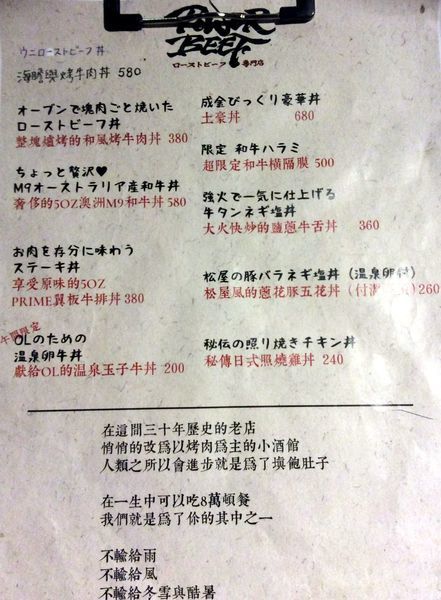 POWER
BEEF
ローストビーフ 専門店
ウニローストビーフ丼
海膽與烤牛肉丼 580
オーブンで塊肉ごと焼いた
ローストビーフ丼
整塊爐烤的和風烤牛肉丼 380
ちょっと贅沢♥
M9オーストラリア産和牛丼
奢侈的5OZ澳洲M9和牛丼 580
お肉を存分に味わう
ステーキ丼
享受原味的5OZ
PRIME翼板牛排丼 380
午間限定
OLのための
温泉卵牛丼
獻給OL的溫泉玉子牛丼 200
成金びっくり豪華丼
土豪丼 680
限定 和牛ハラミ
超限定和牛橫隔膜 500
強火で一気に仕上げる
牛タンネギ塩丼
大火快炒的鹽蔥牛舌丼 360
松屋の豚バラネギ塩丼（温泉卵付）
松屋風的蔥花豚五花丼（付 260
秘伝の照り焼きチキン丼
秘傳日式照燒雞丼 240
在這間三十年歷史的老店
悄悄的改爲以烤肉爲主的小酒館
人類之所以會進步就是爲了填飽肚子
在一生中可以吃8萬頓餐
我們就是爲了你的其中之一
不輸給雨
不輸給風
不輸給冬雪與酷暑